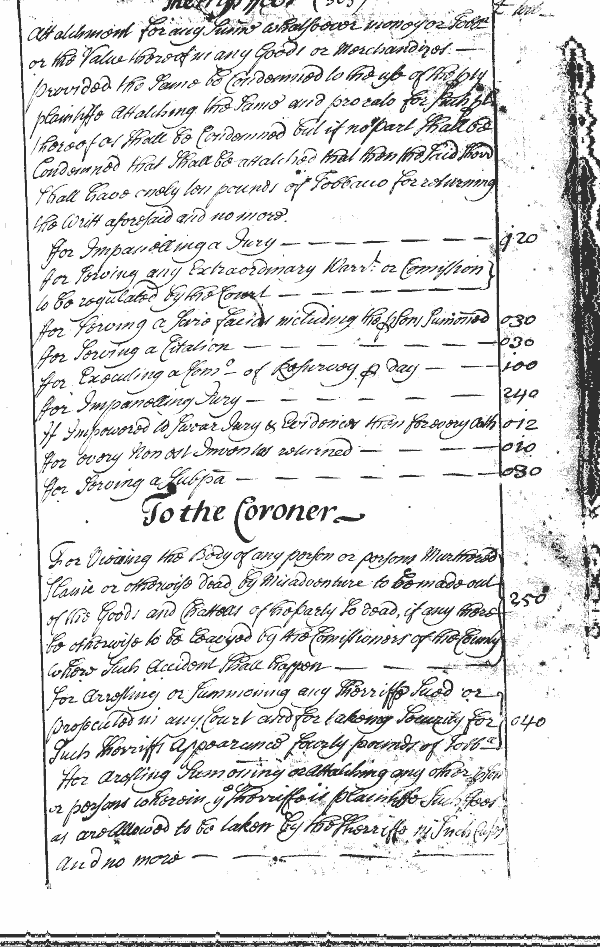 Attachment for any Sume whatsoever money or Tobb:
or the Value thereof in any Goods or Merchandizes —
provided the Same be Condemned to the use of the pty
plaintiffe Attaching the Same and prorato for Such pt
thereof as Shall be Condemned but if no part Shall be
Condemned that Shall be attached that then the Said Sherr
Shall have onely ten pounds of Tobbacco for returning
the Writt aforesaid and no more.
ffor Impanelling a Jury — — — — 120
for Serving any Extraordinary Warrt. or Comission
to be regulated by the Court — — — —
ffor Serving a Scire facias including the psons Sumoned 030
ffor Serving a Citation — — — — 030
ffor Executing a Comn. of Resurvey p day — — 100
ffor Impanelling Jury — — — — 240
If Impowered to Swear Jury & Evidences then for every Oath 012
ffor every Non est Inventus returned — — — 010
ffor Serving a Subpa — — — — 030
To the Coroner —
For Viewing the Body of any person or persons Murthered
Slaine or otherwise dead by Misadventure to be made out
of the Goods and Chattells of the party So dead, if any there 250
be otherwise to be Leavyed by the Comissioners of the County
where Such Accident Shall happen — — —
for Arresting or Summoning any Sherriffe Sued or
prosecuted in any Court and for takeing Security for 040
Such Sherriffs Appearance fourty pounds of Tobb:
ffor Aresting Sumoning or Attaching any other pson
or persons wherein ye Sherriffe is plaintiffe Such ffees
as are Allowed to be taken by the Sherriffe in Such Cases
And no more — — — —